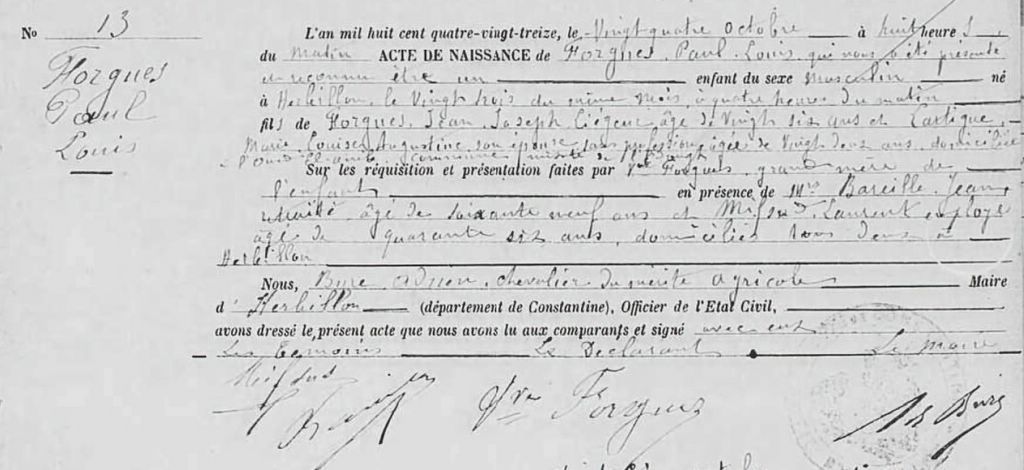 No 13
Forgues
Paul
Louis
L'an mil huit cent quatre-vingt-treize, le Vingt quatre Octobre à huit heures
du Matin ACTE DE NAISSANCE de Forgues Paul Louis qui nous a été présenté
et reconnu être un enfant du sexe Masculin né
à Herbillon, le Vingt trois du même mois, à quatre heures du matin
fils de Forgues, Jean Joseph Liégeur âgé de Vingt six ans et Lartigue,
Marie Louise Augustine son épouse sans profession âgée de Vingt deux ans, domiciliés
à l'Oued commune mixte de
Sur les réquisition et présentation faites par Vve Forgues, grand mère de
l'enfant en présence de Mrs Bareille, Jean
retraité, âgé de soixante neuf ans et Mifsud, Laurent employé
âgé de quarante six ans, domiciliés tous deux à
Herbillon
Nous, Bure Adrien, chevalier du mérite agricole Maire
d' Herbillon (département de Constantine), Officier de l'Etat Civil,
avons dressé le présent acte que nous avons lu aux comparants et signé avec eux
Les Témoins Le Déclarant Le Maire
Mifsud
Vve Forgues
Ad Bure